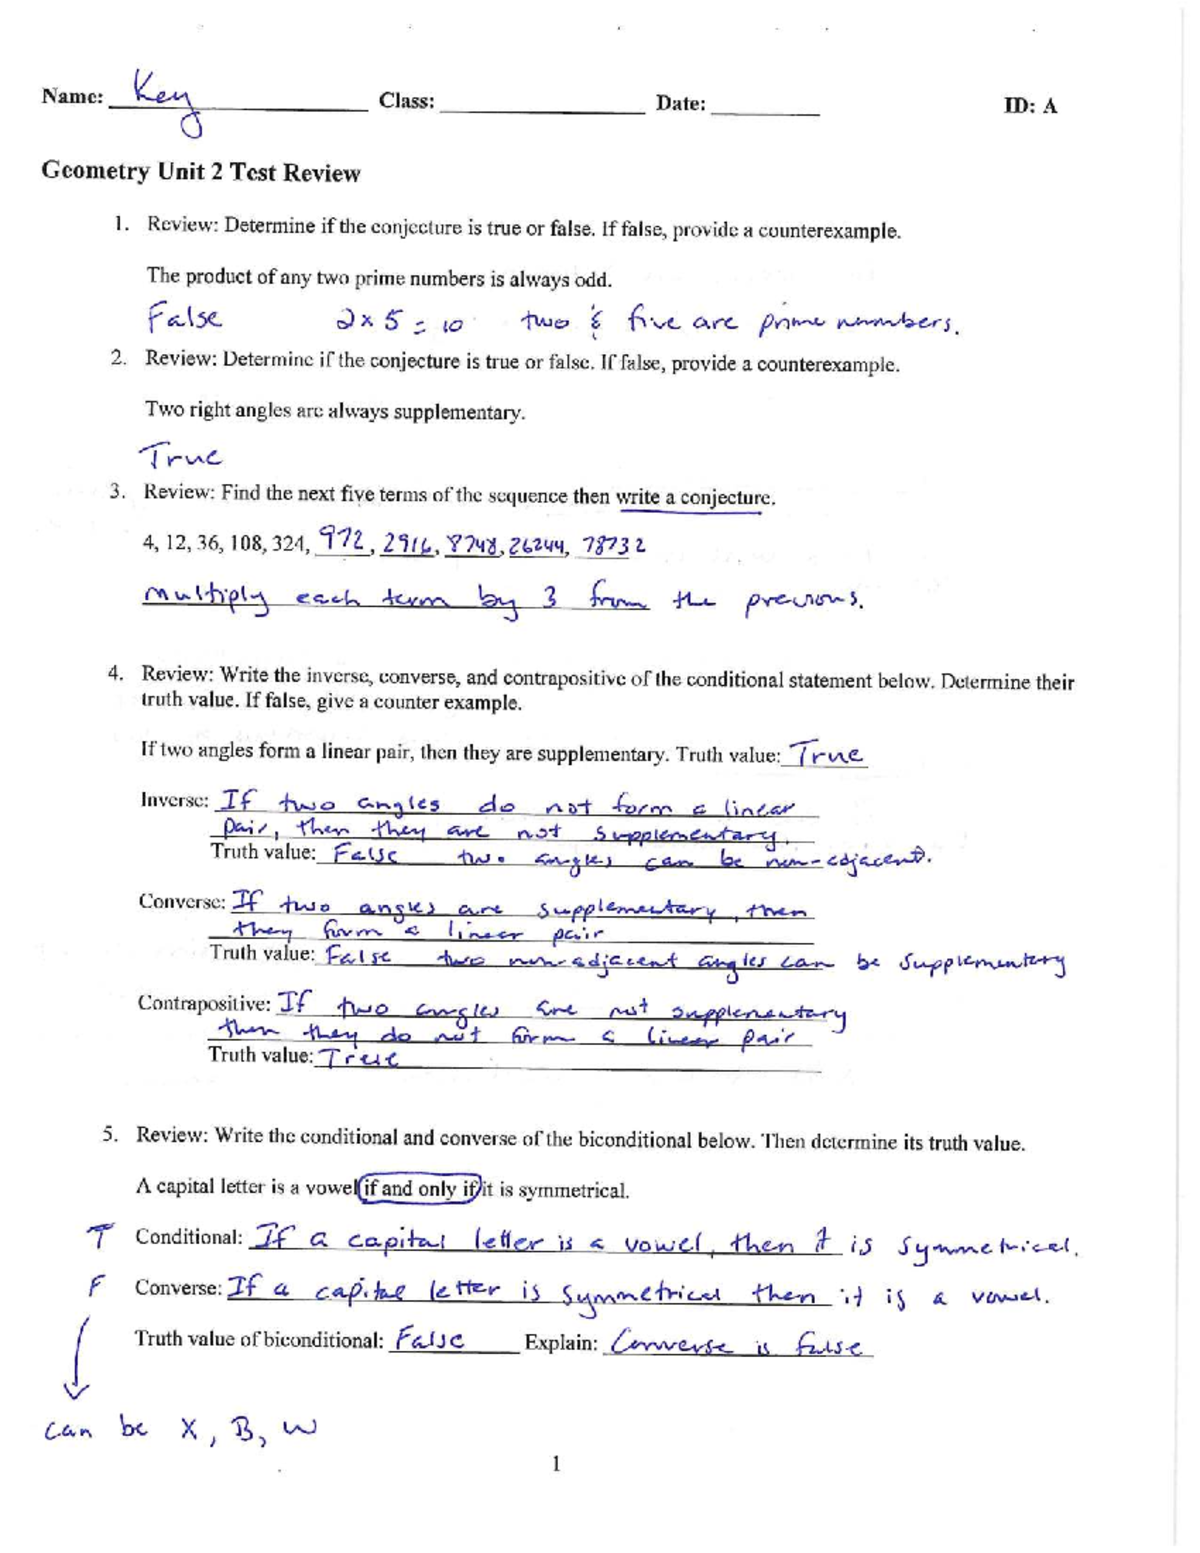 Name: Key Class: Date: ID: A
Geometry Unit 2 Test Review
1. Review: Determine if the conjecture is true or false. If false, provide a counterexample.
The product of any two prime numbers is always odd.
False 2x5=10 two & five are prime numbers.
2. Review: Determine if the conjecture is true or false. If false, provide a counterexample.
Two right angles are always supplementary.
True
3. Review: Find the next five terms of the sequence then write a conjecture.
4, 12, 36, 108, 324, 972, 2916, 8748, 26244, 78732
Multiply each term by 3 from the previous.
4. Review: Write the inverse, converse, and contrapositive of the conditional statement below. Determine their
truth value. If false, give a counter example.
If two angles form a linear pair, then they are supplementary. Truth value: True
Inverse: If two angles do not form a linear
pair, then they are not supplementary.
Truth value: False two angles can be non-adjacent.
Converse: If two angles are supplementary, then
they form a linear pair
Truth value: False two non-adjacent angles can be supplementary
Contrapositive: If two angles are not supplementary
then they do not form a linear pair
Truth value: True
5. Review: Write the conditional and converse of the biconditional below. Then determine its truth value.
A capital letter is a vowel if and only if it is symmetrical.
T Conditional: If a capital letter is a vowel, then it is symmetrical.
F Converse: If a capital letter is symmetrical then it is a vowel.
Truth value of biconditional: False Explain: Converse is false
can be X, B, W
1